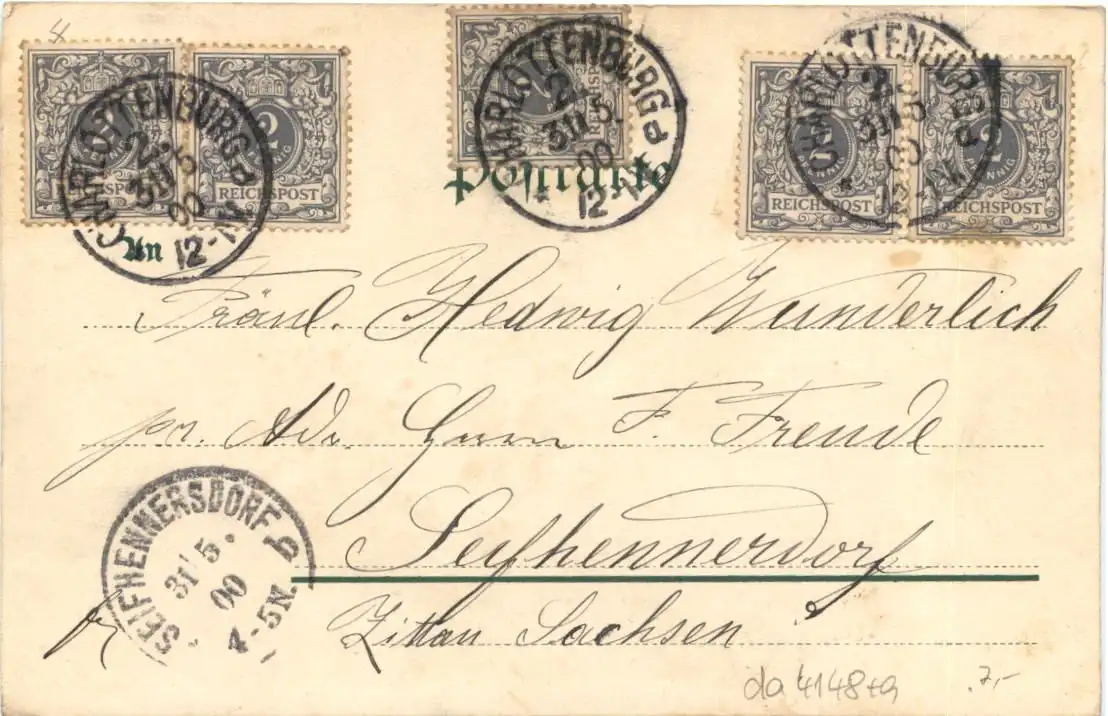 2 PFENNIG REICHSPOST
2 PFENNIG REICHSPOST
REICHSPOST
REICHSPOST
2 PFENNIG REICHSPOST
CHARLOTTENBURG 2. P
31/5.
00
12-1N.
CHARLOTTENBURG 2. P
31/5.
00
12-1N.
CHARLOTTENBURG 2. P
31/5
00
12-1N.
Postkarte
An
Fräul. Hedwig Wunderlich
pr. Adr. Herrn F. Freude
Seifhennerdorf
Zittau Sachsen
SEIFHENNERSDORF
31/5.
00
4-5N.
da 4148+a
.7,-